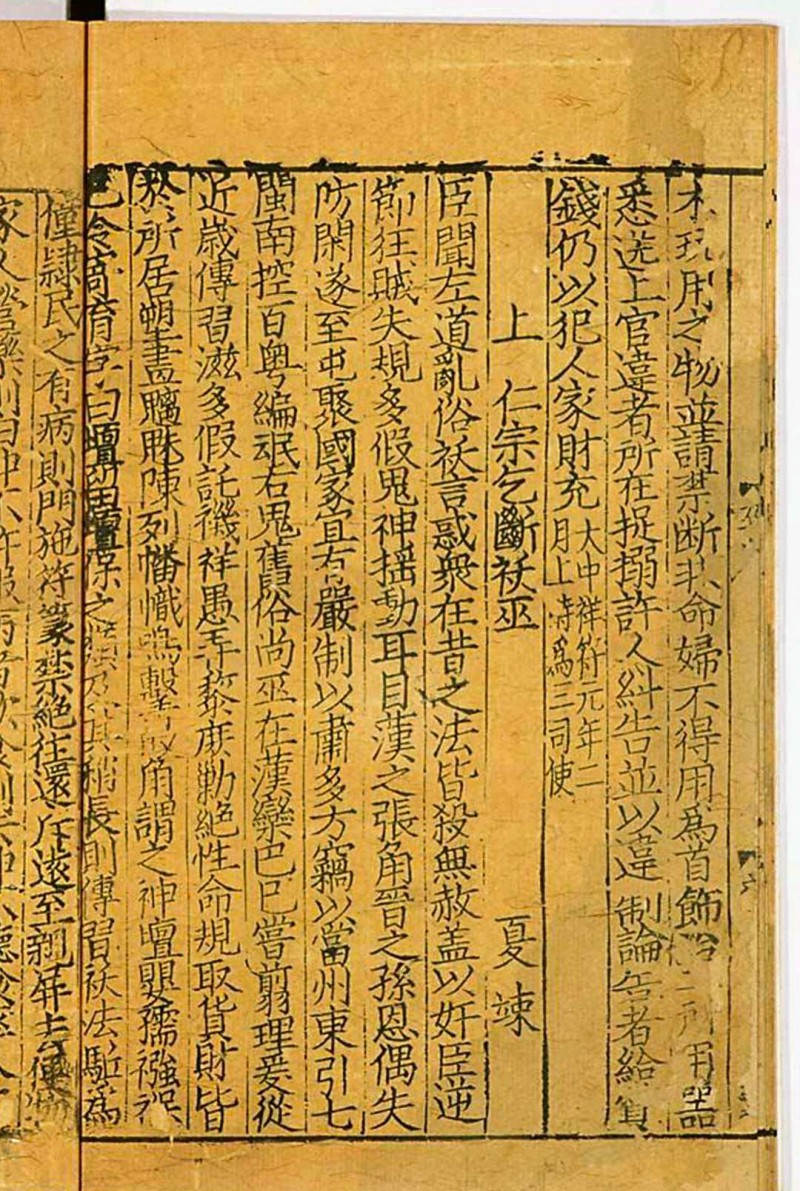 用之物並請禁断非命婦不得用為首飾 用器
悉送上官違者所在捉搦許人糾告並以違制論告者給賞
錢仍以犯人家財充大中祥符元年二
月上時為三司使
上仁宗乞斷祅巫 夏竦
臣聞左道亂俗祅言惑衆在昔之法皆殺無赦盖以奸臣逆
節狂賊失規多假鬼神揺動耳目漢之張角晉之孫恩偶失
防閑遂至屯聚國家宜有嚴制以肅多方竊以當州東引七
閩南控百粤編氓右鬼舊俗尚巫在漢欒巴已嘗翦理爰從
近歳傳習滋多假託禨祥愚弄黎庶勦絶性命規取貨財皆
於所居塑畫魑魅陳列幡幟鳴擊鼓角謂之神壇嬰孺襁褓
已令寄育字曰壇留壇保之類及其稍長則傳習祅法駈為
僮隸民之有病則門施符篆禁絶往還斥遠至親屏去便物
家人營藥則曰神不許服病者